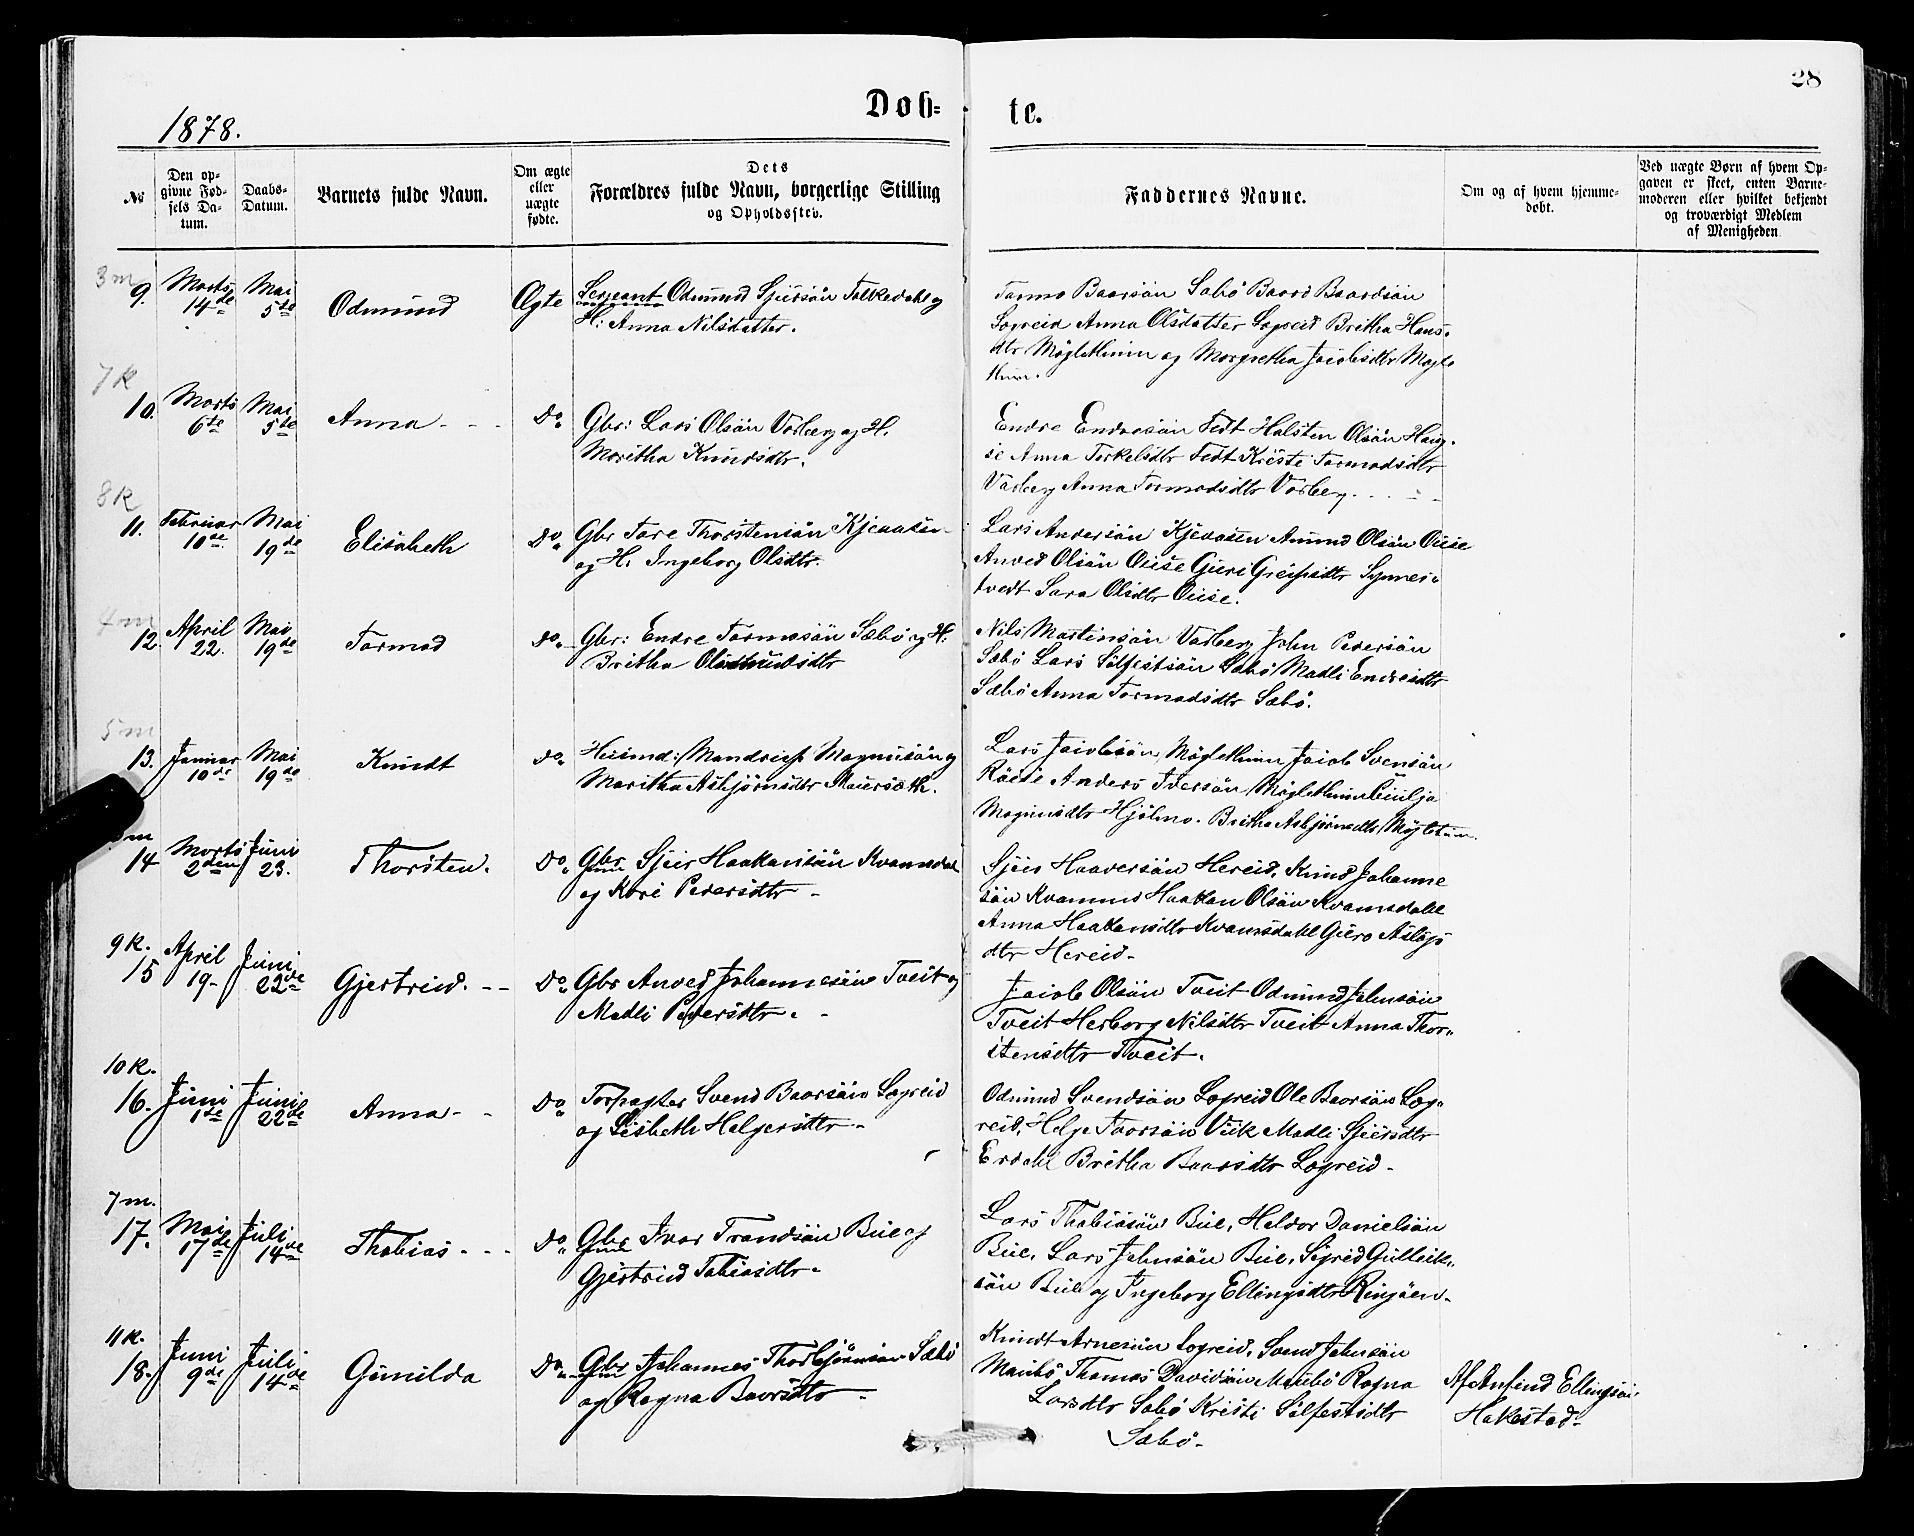 28
Døb-
te.
1878.
№
Den op-
givne Fød-
sels Da-
tum.
Daabs-
Datum.
Barnets fulde Navn.
Om ægte
eller
uægte
fødte.
Dets
Forældres fulde Navn, borgerlige Stilling
og Opholdssted.
Faddernes Navne.
Om og af hvem hjemme-
døbt.
Ved uægte Børn af hvem Op-
gaven er skeet, enten Barne-
moderen eller hvilket bekjendt
og troværdigt Medlem
af Menigheden
3 m
9.
Marts
14de
Mai
5te
Odmund
Ægte
Sergeant Odmund Sjursön Folkedahl og
H: Anna Nilsdatter.
Tormo Baarsön Sæbö Baard Baardsön
Legreid Anna Olsdatter Legreid Britha Hans-
dtr Mögletthuun og Margretha Jacobsdtr Mögle
thun.
7 k
10.
Marts
6te
Mai
5te
Anna - - -
Do
Gbr: Lars Olsön Varberg og H.
Maritha Knudsdtr.
Endre Endresön Tedt Halsten Olsön Haug-
se Anna Torkelsdtr Tedt Kristi Tormodsdtr
Varberg Anna Tormodsdtr Varberg
8 k
11.
Februar
10de
Mai
19de
Elisabeth
Do
Gbr Tore Thorstensön Kjeaasen
og H. Ingeborg Olsdtr.
Lars Andersön Kjeaasen Amund Olsön Öise
Anved Olsön Öise Guri Greipsdtr Synnes-
tvedt Sara Olsdtr Öise.
4 m
12
April
22.
Mai
19de
Tormod
Do
Gbr: Endre Tormosön Sæbö og H:
Britha Odmundsdtr
Nils Martinsön Varberg John Pedersön
Sæbö Lars Sölfestsön Sæbö Madli Endresdtr
Sæbö Anna Tormodsdtr Sæbö.
5 m
13.
Januar
10de
Mai
19de
Knudt
Do
Huusmd: Mandrup Magnusön og
Maritha Asbjörnsdtr Maursæth.
Lars Jacobsön Mögletthuun Jacob Svensön
Röise Anders Iversön Mögletthuun Cecilja
Magnusdtr Hjölmo. Britha Asbjörnsdtr Mögletun.
m
14
Marts
2den
Juni
23.
Thorsten.
Do
Gbr Sjur Haakonsön Kvamsdal
og Kari Pedersdtr -
Sjur Haaversön Hereid, Knud Johanne
sön Kvammd Haakon Olsön Kvamsdahl
Anna Haakonsdtr Kvamsdahl Guro Aslags
dtr Hereid -
9 k.
15
April
19 -
Juni
22de
Gjertrud. - -
Do
Gbr Anved Johannesön Tveit og
Madli Pedersdtr. -
Jacob Olsön Tveit Odmund Johnsön
Tveit Herborg Nilsdtr Tveit Anna Thor-
stensdtr Tveit.
10 k.
16.
Juni
1ste
Juni
22de
Anna - -
Do
Forpagter Svend Baarsön Legreid
og Lisbeth Helgesdtr -
Odmund Svendsön Legreid Ole Baarsön Leg-
reid, Helge Ivarsön Viik Madli Sjursdtr
Erdahl Britha Baarsdtr Legreid -
7 m.
17.
Mai
17de
Juli
14de
Thobias - - -
Do
Gbr Ivar Trondsön Bue og
Gjertrud Tobiasdtr.
Lars Thobiasön Bue, Haldor Danielsön
Bue, Lars Johnsön Bue, Sigrid Gulleik-
sön Bue og Ingeborg Ellingsdtr Ringöen -
11 k.
18.
Juni
9de
Juli
14de
Gunilda
Do
Gbr Johannes Thorbjörnson Sæbö
og Ragna Baarsdtr -
Knudt Arnesön Legreid, Svend Johnsön
Maubö Thomas Davidsön Maubö Ragna
Larsdtr Sæbö Kristi Sölfestsdtr
Sæbö -
Af Anfind Ellingsön
Hakestad -